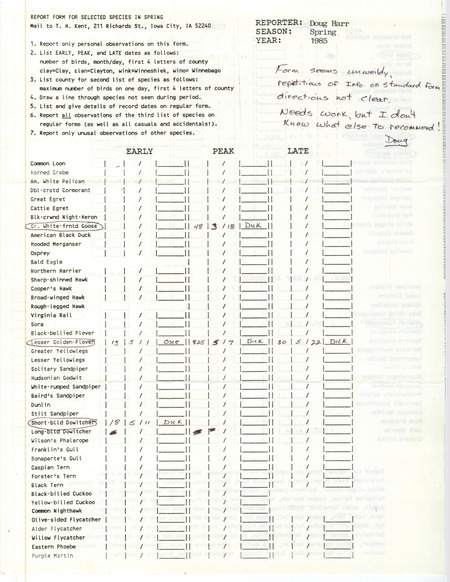 REPORT FORM FOR SELECTED SPECIES IN SPRING
Mail to T. H. Kent, 211 Richards St., Iowa City, IA 52240
REPORTER: Doug Harr
SEASON: Spring
YEAR: 1985
1. Report only personal observations on this form.
2. List EARLY, PEAK, and LATE dates as follows:
number of birds, month/day, first 4 letters of county
clay=Clay, clan=Clayton, wink=Winneshiek, wino= Winnebago
3. List county for second list of species as follows:
maximum number of birds on one day, first 4 letters of county
4. Draw a line through species not seen during period.
5. List and give details of record dates on regular form.
6. Report all observations of the third list of species on
regular forms (as well as all casuals and accidentals).
7. Report only unusual observations of other species.
Form seems unweildy,
repetitions of Info on standard form
directions not clear.
Needs work, but I don't
know what else to recommend!
Doug
EARLY PEAK LATE
Common Loon
Horned Grebe
Am. White Pelican
Dbl-crstd Cormorant
Great Egret
Cattle Egret
Blk-crwnd Night-Heron
Gr. White-frntd Goose 48 3 / 18 Dick
American Black Duck
Hooded Merganser
Osprey
Bald Eagle
Northern Harrier
Sharp-shinned Hawk
Cooper's Hawk
Broad-winged Hawk
Rough-legged Hawk
Virginia Rail
Sora
Black-bellied Plover
Lesser Golden-Plover 13 5 / 1 Osce 825 5 / 7 Dick 30 5 / 22 Dick
Greater Yellowlegs
Lesser Yellowlegs
Solitary Sandpiper
Hudsonian Godwit
White-rumped Sandpiper
Baird's Sandpiper
Dunlin
Stilt Sandpiper
Short-blld Dowitcher 18 5 / 11 Dick
Long-blld Dowitcher
Wilson's Phalarope
Franklin's Gull
Bonaparte's Gull
Caspian Tern
Forster's Tern
Black Tern
Black-billed Cuckoo
Yellow-billed Cuckoo
Common Nighthawk
Olive-sided Flycatcher
Alder Flycatcher
Willow Flycatcher
Eastern Phoebe
Purple Martin